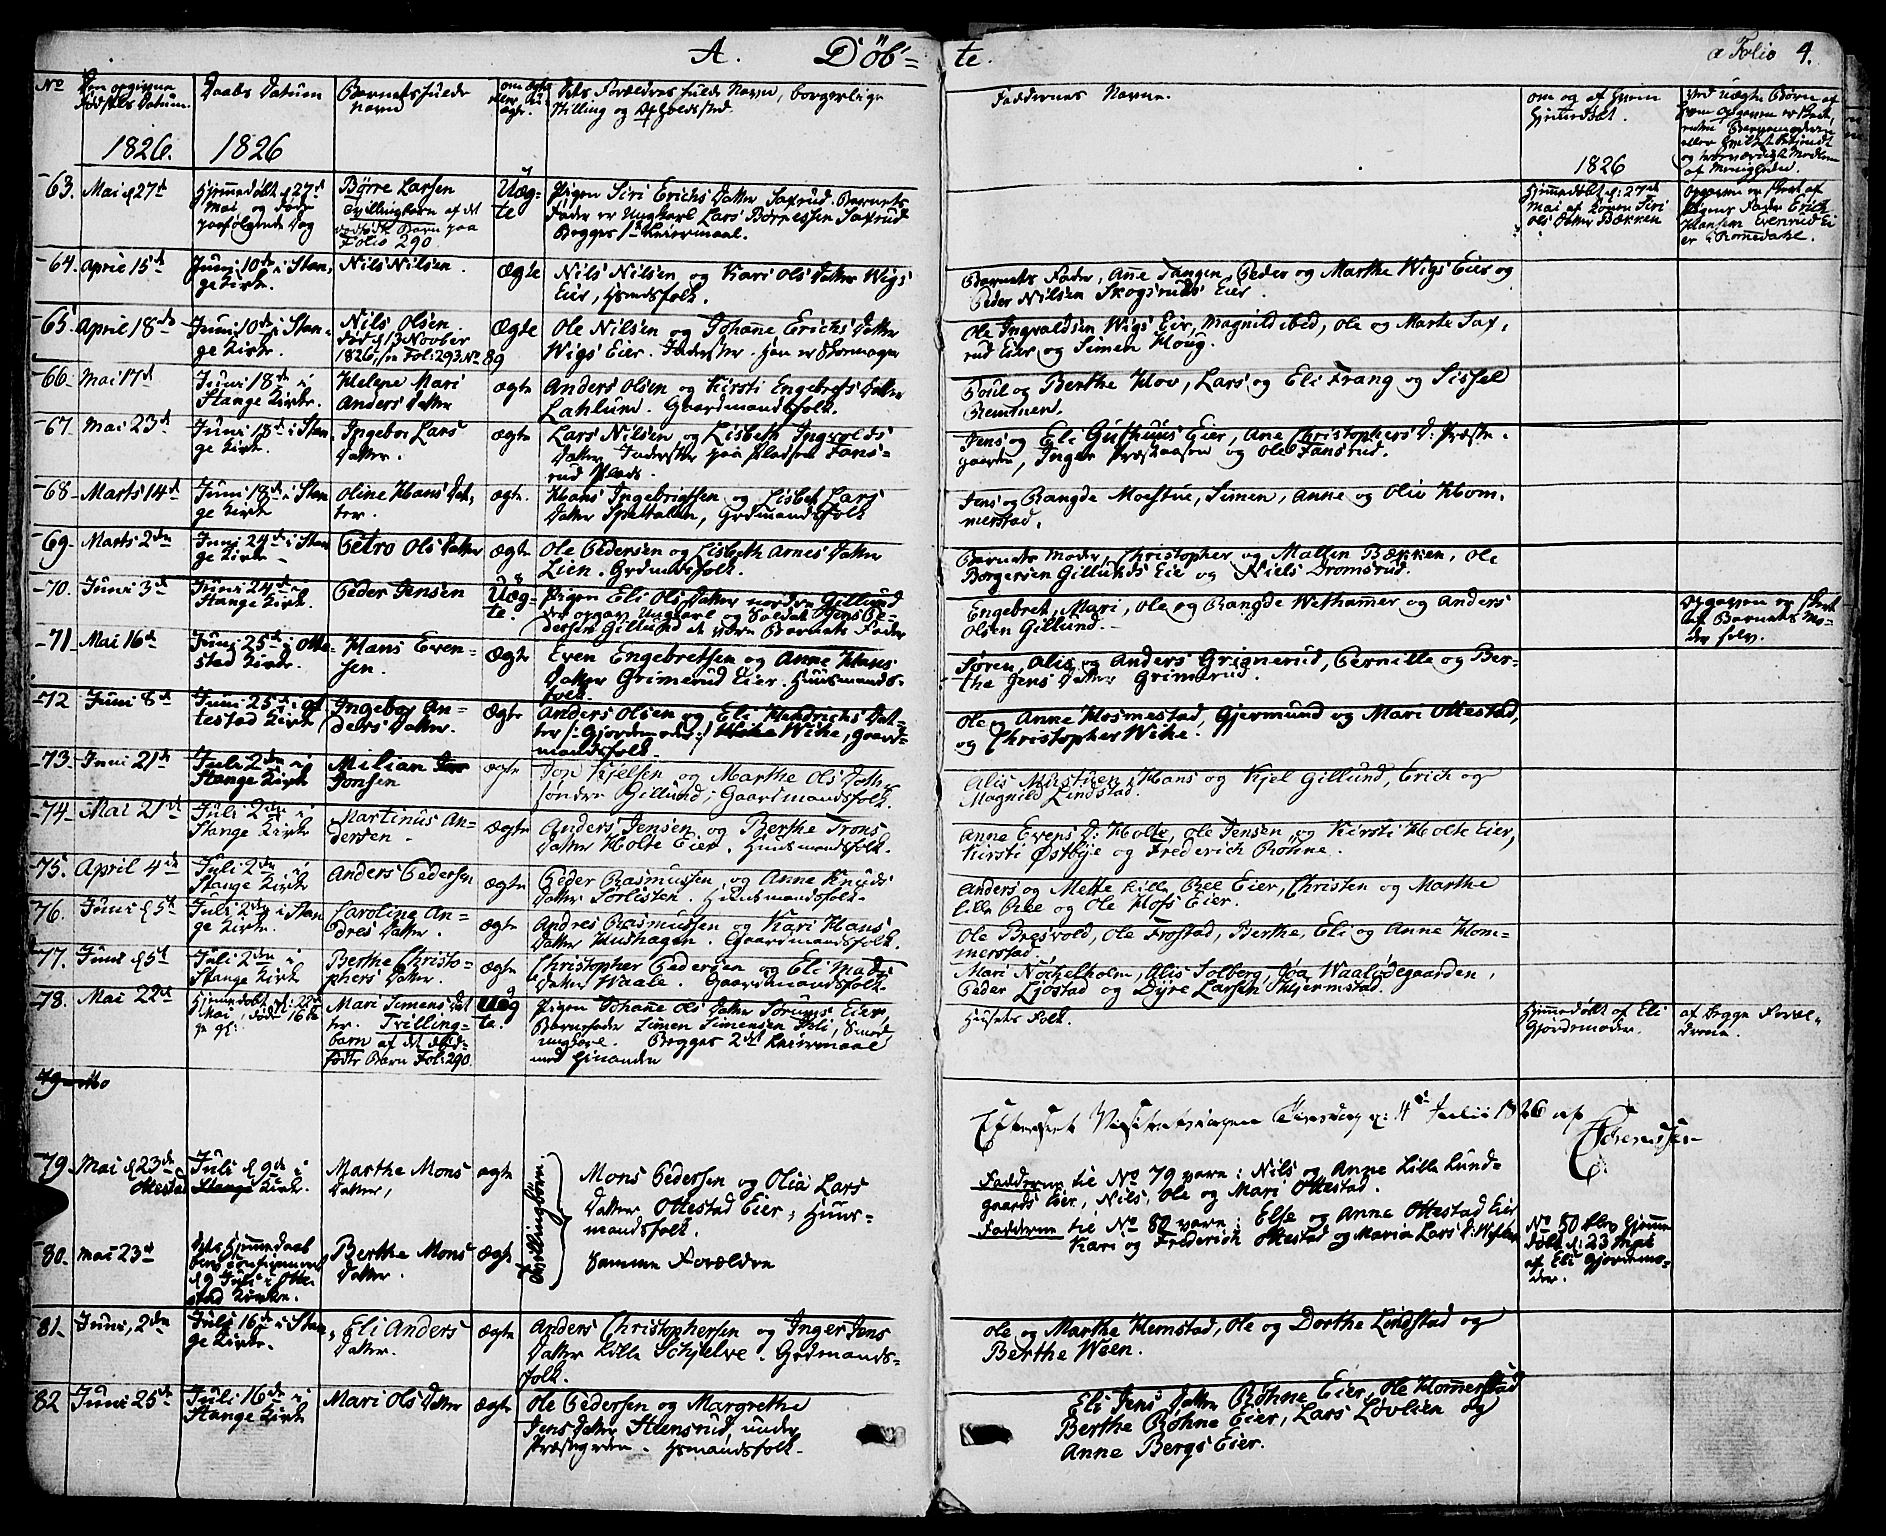 A. Døb=
te.
a Folio 4.
No
Den opgivne
Fødsels Datum.
Daabs Datum
Barnets fulde
Navn
om ægte
eller u
ægte.
Dets Forældres fulde Navn, borgerlige
Stilling og Opholdssted.
Faddernes Navne.
om og af hvem
hjemmedøbt.
1826. 1826
1826
63. Mai d 27d
Hjemmedøbt d 27d
Mai og døde
paafølgende Dag
Børre Larsen
Tvillingbarn af det
dødfødte Barn paa
Folio 290
Uæg-
te
Pigen Siri Erichs Datter Saxrud. Barnets
Fader er Ungkarl Lars Børresen Saxrud
Begges 1ste Leiermaal.
Hjemmedøbt d: 27de
Mai af Konen Siri
Ols Datter Bækken
Opgaven er skeet af
Pigens Fader Erich
Hansen Evenrud Ei
er i Romedahl.
64. April 15d
Juni 10de i Stan-
ge Kirke.
Nils Nilsen.
Ægte
Nils Nilsen og Kari Ols Datter Wigs
Eier, Hmandsfolk.
Barnets Fader, Ane Tangen, Peder og Marthe Wigs Eier og
Peder Nilsen Skogsruds Eier.
65. April 18de
Juni 10de i Stan-
ge Kirke.
Nils Olsen
død d 13 Novber
1826, see Fol: 293. No 89
Ægte
Ole Nilsen og Johane Erichs Datter
Wigs Eier. Inderster. Han er Skomager
Ole Ingvaldsen Wigs Eier, Magnild ibid, Ole og Marte Sax-
rud Eier og Simen Houg.
66. Mai 17d
Juni 18de i
Stange Kirke.
Helene Mari
Anders Datter
ægte
Anders Olsen og Kirsti Engebrets Datter
Lahlum. Gaardmandsfolk.
Poul og Berthe Hov, Lars og Eli Frang og Sissel
Remmen.
67. Mai 23d
Juni 18d i Stan-
ge Kirke.
Ingebor Lars
Datter.
ægte
Lars Nilsen og Lisbeth Ingvolds
Datter Inderster paa Pladsen Fans-
rud Plads.
Jens og Eli Guthuus Eier, Ane Christophers D: Præste-
gaarden, Inger Præstaasen og Ole Fansrud.
68. Marts 14d
Juni 18d i Stan-
ge Kirke
Oline Hans Dat-
ter.
ægte.
Hans Ingebrigtsen og Lisbet Lars
Datter Spetalen, Grdmandsfolk
Jens og Rangde Moestue, Simen, Anne og Oliv Hom-
merstad.
69. Marts 2den
Juni 24d i Stan
ge Kirke.
Petro Ols Datter
ægte
Ole Pedersen og Lisbeth Arnes Datter
Lien. Grdmandsfolk.
Barnets Moder, Christopher og Mallin Bækken, Ole
Borgersen Gillunds Eie og Niels Dromsrud.
70. Juni 3d
Juni 24d i
Stange Kirke.
Peder Jensen
Uæg-
te.
Pigen Eli Ols Datter nordre Gillund
der opgav Ungkarl og Soldat Jens Pe-
dersen Gillund at være Barnets Fader
Engebret, Mari, Ole og Rangde Wethammer og Anders
Olsen Gillund.
Opgaven er skeet
af Barnets Mo-
der selv.
71. Mai 16d
Juni 25d i Otte-
stad Kirke.
Hans Even-
sen.
Ægte
Even Engebretsen og Anne Hans
Datter Grimerud Eier. Huusmands-
folk.
Søren, Alis og Anders Grignerud, Pernille og Ber-
the Jens Datter Grimerud.
72 Juni 8d
Juni 25d i Ot
testad Kirke
Ingebor An-
ders Datter.
Ægte
Anders Olsen og Eli Hendrichs Dat-
ter /: Gjordemoder :/ Wihe, Gaard-
mandsfolk.
Ole og Anne Hosmestad, Gjermund og Mari Ottestad,
og Christopher Wihe.
73. Juni 21d
Juli 2den i
Stange Kirke
Milian
Jonsen
ægte
Jon Kjelsen og Marthe Ols Datter
søndre Gillund; Gaardmandsfolk.
Alis Mostuen, Hans og Kjel Gillund, Erich og
Magnild Lindstad.
74. Mai 21d
Juli 2den i
Stange Kirke
Martinus An-
dersen.
ægte
Anders Jensen og Berthe Trons
Datter Holte Eier. Huusmandsfolk.
Anne Evens D: Holte, Ole Jensen, og Kirsti Holte Eier,
Kirsti Østbye og Frederich Røhne.
75. April 4de
Juli 2den i
Stange Kirke
Anders Pedersen
ægte
Peder Rasmussen og Anne Knuds
Datter Sørlisten. Huusmandsfolk.
Anders og Mette lille Ree Eier, Christen og Marthe
lille Ree og Ole Hofs Eier.
76. Juni d 5d
Juli 2den i Stan
ge Kirke.
Caroline An-
dres Datter.
ægte
Andres Rasmussen og Kari Hans
Datter Hushagen. Gaardmandsfolk.
Ole Bresvold, Ole Frostad, Berthe, Eli og Anne Hom-
merstad.
77. Juni d 5d
Juli 2den i
Stange Kirke
Berthe Christo-
phers Datter.
ægte
Christopher Pedersen og Eli Mads
Datter Waale. Gaardmandsfolk.
Mari Nøckelholm, Alis Solberg, Goa Waalødegaarden,
Peder Ljøstad og Dyre Larsen Skjermstad.
78. Mai 22d
Mari Simens Dat
ter. Trilling-
barn af det død-
fødte Barn Fol: 290
Uæg
te.
Pigen Johane Ols Datter Sørums Eier,
Barnefader Simen Simensen Ihli, Smed
ungkarl. Begges 2det Leiermaal
med hinanden
Husets Folk.
Hjemmedøbt af Eli
Gjordemoder.
af begge Foræl-
drene.
Efterseet Visitatsdagen Tiirsdag d: 4de Julii 1826 af
79. Mai d 23de
Juli d 9d i
Ottestad
Stange Kirke.
Marthe Mons
Datter,
ægte
Tvillingbørn.
Mons Pedersen og Olia Lars
Datter Ottestad Eier, Huus-
mandsfolk.
Fadderne til No 79 vare: Nils og Anne Lille Lund-
gaards Eier, Nils, Ole og Mari Ottestad.
80. Mai 23d
Dets Hjemmedaab
blev confirmeret
d 9 Juli i Otte
stad Kirke.
Berthe Mons
Datter.
Ægte
Samme Forældre
Fadderne til No 80 vare: Else og Anne Ottestad Eier
Kari og Frederich Ottestad og Maria Lars D:
No 80 blev hjemme
døbt d: 23 Mai
af Eli Gjordemo-
der.
81. Juni, 2den
Juli 16d i Stan-
ge Kirke.
Eli Anders
Datter.
Ægte
Anders Christophersen og Inger Jens
Datter Lille Schjelve. Grdmands-
folk.
Ole og Marthe Hemstad, Ole og Dorthe Lindstad og
Berthe Ween.
82 Juni 25de
Juli 16de i
Stange Kirke
Mari Ols Datter
ægte
Ole Pedersen og Margrethe
Jens Datter Steensrud, under
Præstegrden. Hsmandsfolk.
Eli Jens Datter Røhne Eier, Ole Homerstad
Berthe Røhne Eier, Lars Løvlien og
Anne Bergs Eier.